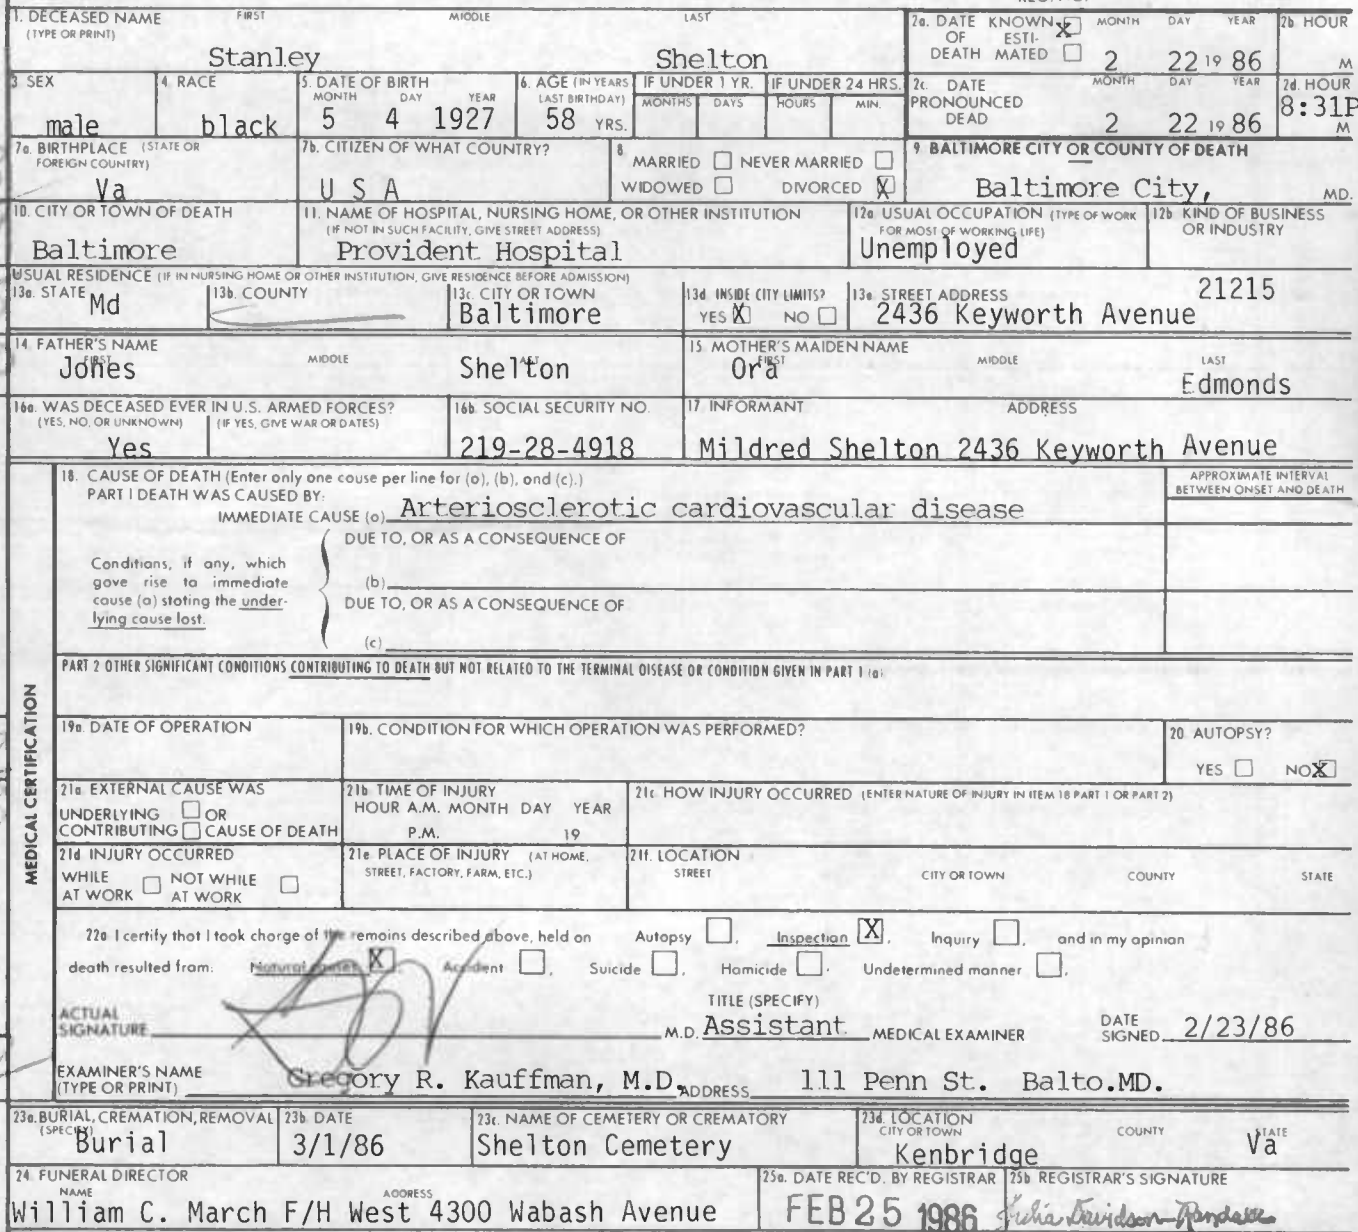 1. DECEASED NAME FIRST MIDDLE LAST
(TYPE OR PRINT)
Stanley Shelton
2a. DATE KNOWN X MONTH DAY YEAR
OF ESTI-
DEATH MATED 2 22 19 86
2b HOUR
M
3 SEX
male
4. RACE
black
5. DATE OF BIRTH
MONTH DAY YEAR
5 4 1927
6. AGE (IN YEARS
LAST BIRTHDAY)
58 YRS.
IF UNDER 1 YR.
MONTHS DAYS
IF UNDER 24 HRS.
HOURS MIN.
2c. DATE MONTH DAY YEAR
PRONOUNCED
DEAD 2 22 19 86
2d. HOUR
8:31P
M
7a. BIRTHPLACE (STATE OR
FOREIGN COUNTRY)
Va
7b. CITIZEN OF WHAT COUNTRY?
U S A
8.
MARRIED NEVER MARRIED
WIDOWED DIVORCED X
9. BALTIMORE CITY OR COUNTY OF DEATH
Baltimore City, MD.
10. CITY OR TOWN OF DEATH
Baltimore
11. NAME OF HOSPITAL, NURSING HOME, OR OTHER INSTITUTION
(IF NOT IN SUCH FACILITY, GIVE STREET ADDRESS)
Provident Hospital
12a USUAL OCCUPATION (TYPE OF WORK
FOR MOST OF WORKING LIFE)
Unemployed
12b KIND OF BUSINESS
OR INDUSTRY
USUAL RESIDENCE (IF IN NURSING HOME OR OTHER INSTITUTION, GIVE RESIDENCE BEFORE ADMISSION)
13a. STATE
Md
13b. COUNTY
13c. CITY OR TOWN
Baltimore
13d. INSIDE CITY LIMITS?
YES X NO
13e STREET ADDRESS 21215
2436 Keyworth Avenue
14. FATHER'S NAME
FIRST MIDDLE LAST
Jones Shelton
15. MOTHER'S MAIDEN NAME
FIRST MIDDLE LAST
Ora Edmonds
16a. WAS DECEASED EVER IN U.S. ARMED FORCES?
(YES, NO, OR UNKNOWN) (IF YES, GIVE WAR OR DATES)
Yes
16b. SOCIAL SECURITY NO.
219-28-4918
17. INFORMANT ADDRESS
Mildred Shelton 2436 Keyworth Avenue
MEDICAL CERTIFICATION
18. CAUSE OF DEATH (Enter only one cause per line for (a), (b), and (c).)
PART I DEATH WAS CAUSED BY:
IMMEDIATE CAUSE (a) Arteriosclerotic cardiovascular disease
APPROXIMATE INTERVAL
BETWEEN ONSET AND DEATH
DUE TO, OR AS A CONSEQUENCE OF
Conditions, if any, which
gave rise to immediate
cause (a) stating the under-
lying cause last.
(b)
DUE TO, OR AS A CONSEQUENCE OF
(c)
PART 2 OTHER SIGNIFICANT CONDITIONS CONTRIBUTING TO DEATH BUT NOT RELATED TO THE TERMINAL DISEASE OR CONDITION GIVEN IN PART 1 (a)
19a. DATE OF OPERATION
19b. CONDITION FOR WHICH OPERATION WAS PERFORMED?
20. AUTOPSY?
YES NO X
21a EXTERNAL CAUSE WAS
UNDERLYING OR
CONTRIBUTING CAUSE OF DEATH
21b TIME OF INJURY
HOUR A.M. MONTH DAY YEAR
P.M. 19
21c HOW INJURY OCCURRED (ENTER NATURE OF INJURY IN ITEM 18 PART 1 OR PART 2)
21d INJURY OCCURRED
WHILE NOT WHILE
AT WORK AT WORK
21e PLACE OF INJURY (AT HOME,
STREET, FACTORY, FARM, ETC.)
21f. LOCATION
STREET CITY OR TOWN COUNTY STATE
22a I certify that I took charge of the remains described above, held on Autopsy , Inspection X , Inquiry , and in my opinion
death resulted from: Natural causes X , Accident , Suicide , Homicide , Undetermined manner ,
TITLE (SPECIFY)
ACTUAL
SIGNATURE M.D. Assistant MEDICAL EXAMINER
DATE
SIGNED 2/23/86
EXAMINER'S NAME
(TYPE OR PRINT) Gregory R. Kauffman, M.D. ADDRESS 111 Penn St. Balto.MD.
23a. BURIAL, CREMATION, REMOVAL
(SPECIFY)
Burial
23b. DATE
3/1/86
23c. NAME OF CEMETERY OR CREMATORY
Shelton Cemetery
23d. LOCATION
CITY OR TOWN COUNTY STATE
Kenbridge Va
24. FUNERAL DIRECTOR
NAME ADDRESS
William C. March F/H West 4300 Wabash Avenue
25a. DATE REC'D. BY REGISTRAR
FEB 25 1986
25b REGISTRAR'S SIGNATURE
Julia Davidson-Randall